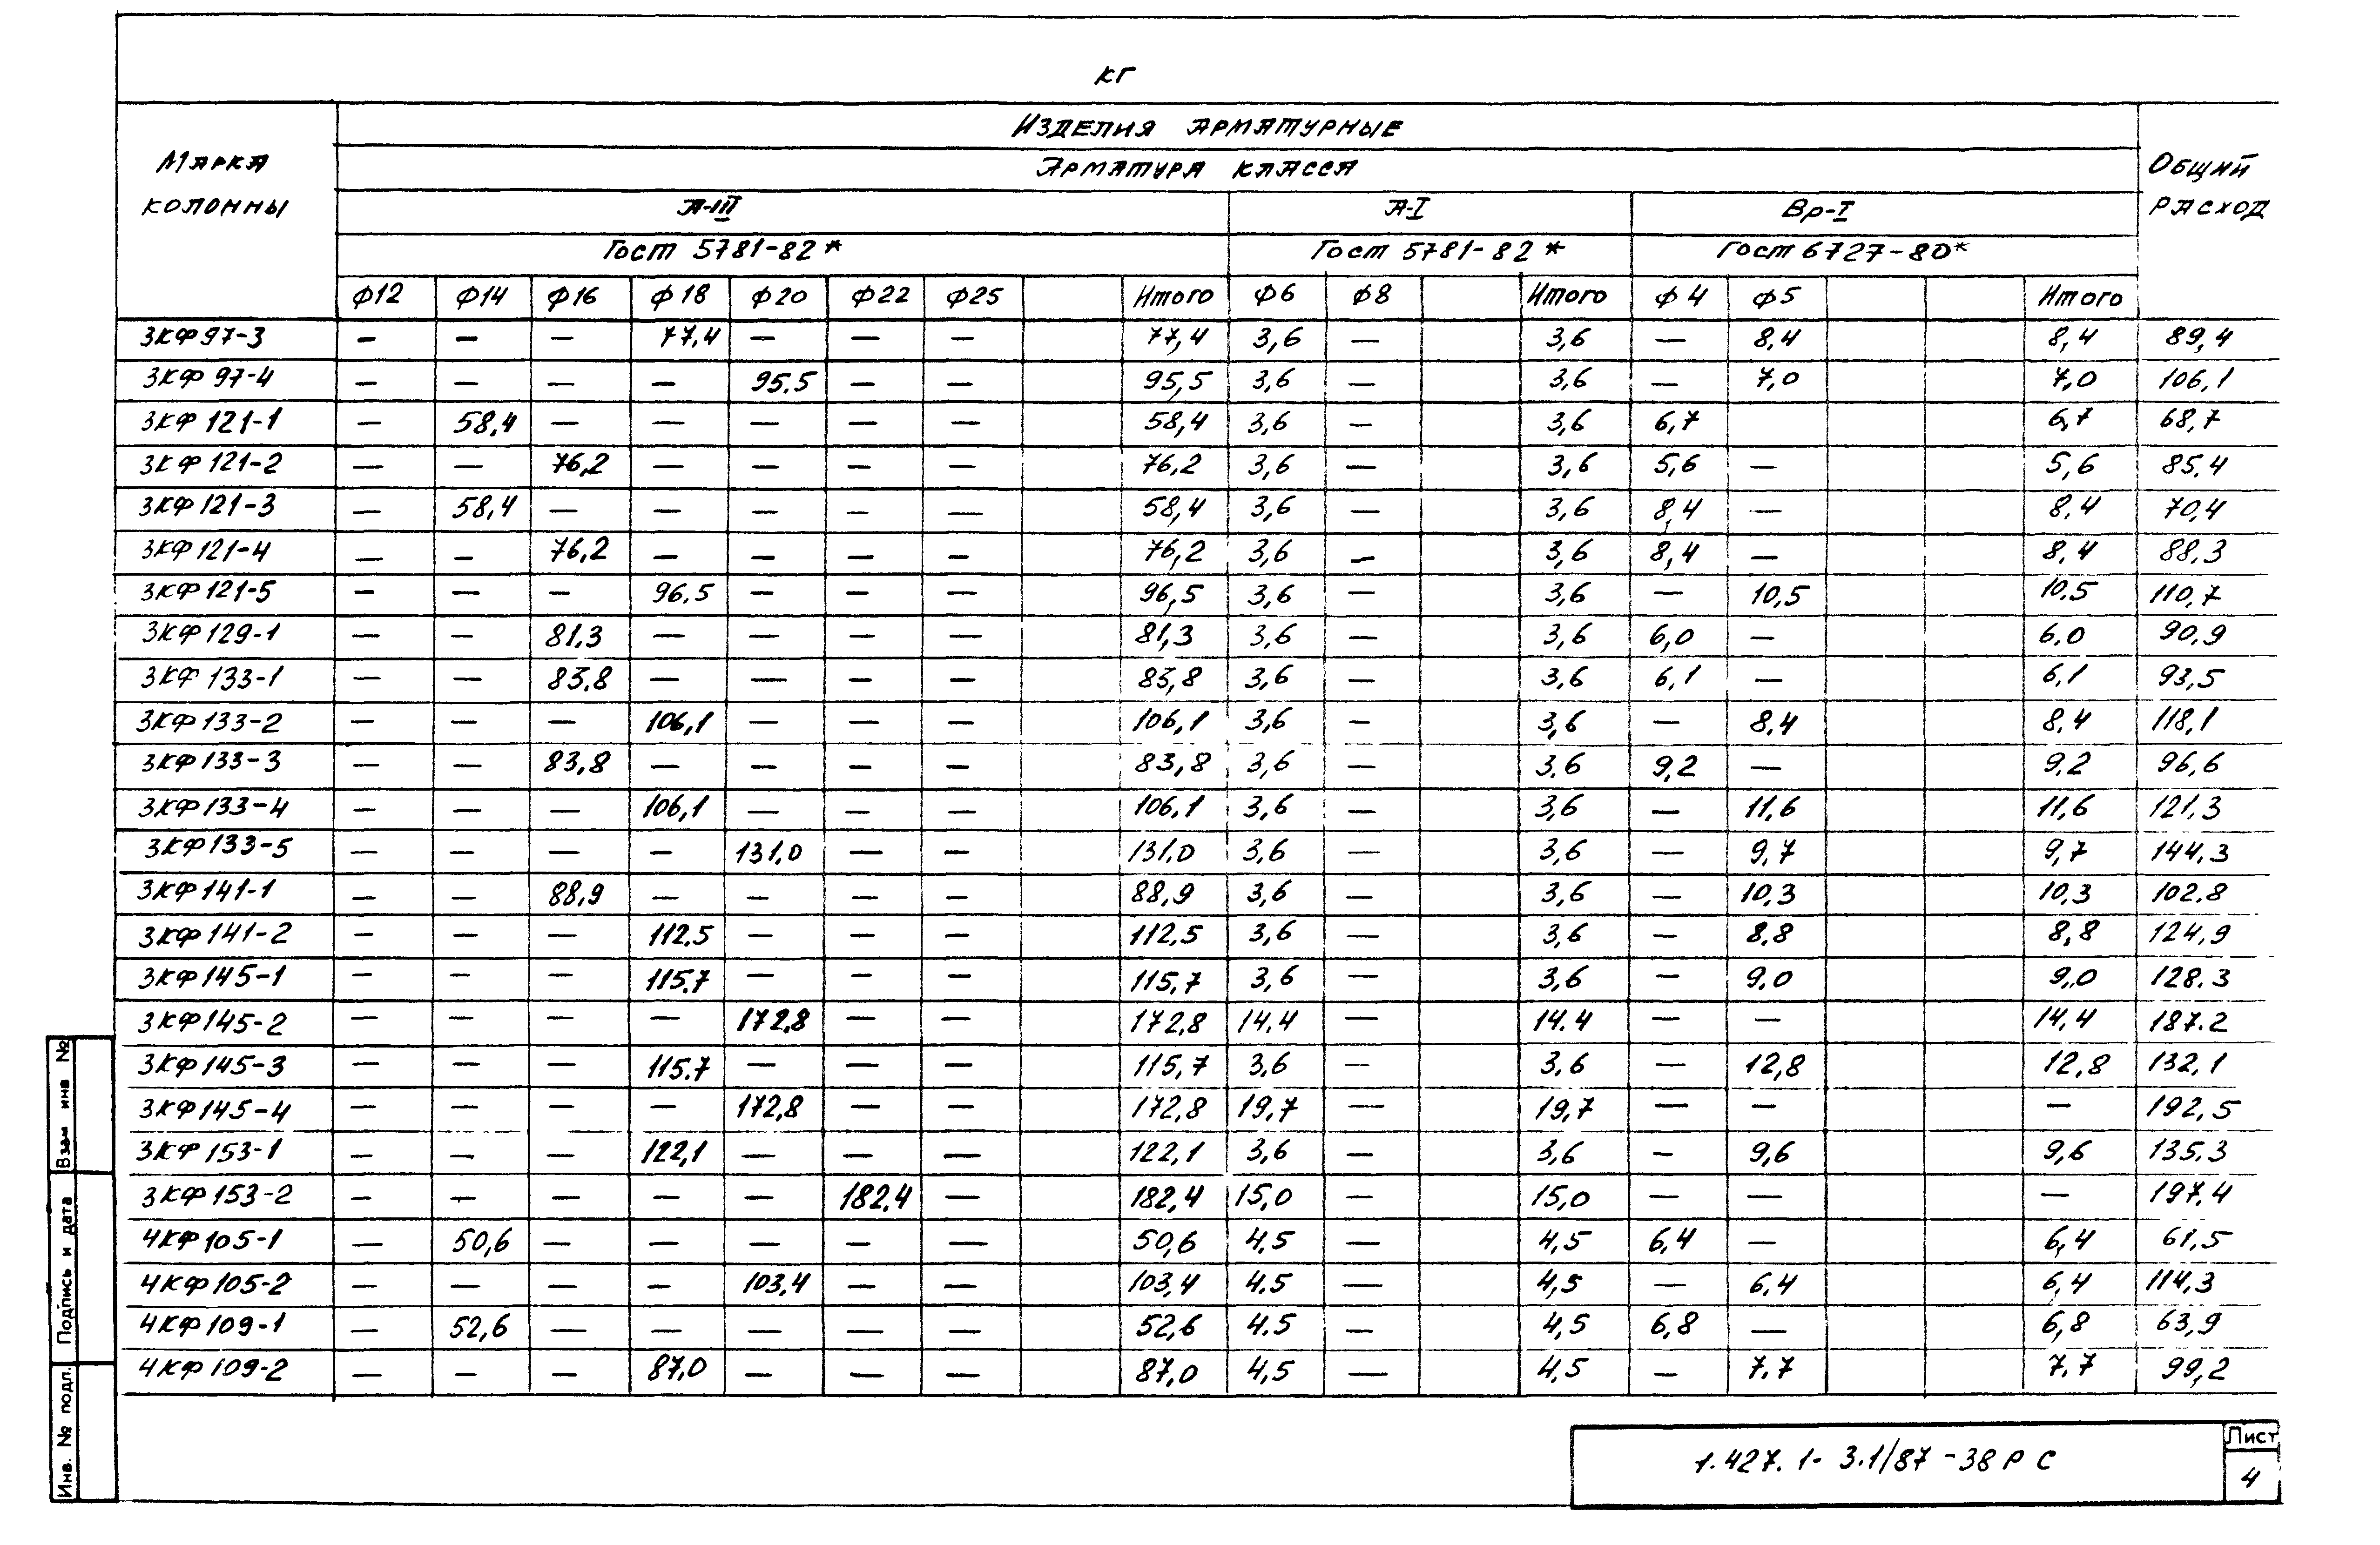 кг
Марка колонны | Изделия арматурные | Общий расход
Арматура класса
А-III | А-I | Вр-I
Гост 5781-82* | Гост 5781-82* | Гост 6727-80*
Ф12 | Ф14 | Ф16 | Ф18 | Ф20 | Ф22 | Ф25 | | Итого | Ф6 | Ф8 | | Итого | Ф4 | Ф5 | | | Итого
3КФ97-3 | — | — | — | 77,4 | — | — | — | | 77,4 | 3,6 | — | | 3,6 | — | 8,4 | | | 8,4 | 89,4
3КФ97-4 | — | — | — | — | 95.5 | — | — | | 95,5 | 3,6 | — | | 3,6 | — | 7,0 | | | 7,0 | 106,1
3КФ121-1 | — | 58,4 | — | — | — | — | — | | 58,4 | 3,6 | — | | 3,6 | 6,7 | | | | 6,7 | 68,7
3КФ121-2 | — | — | 76,2 | — | — | — | — | | 76,2 | 3,6 | — | | 3,6 | 5,6 | — | | | 5,6 | 85,4
3КФ121-3 | — | 58,4 | — | — | — | — | — | | 58,4 | 3,6 | — | | 3,6 | 8,4 | — | | | 8,4 | 70,4
3КФ121-4 | — | — | 76,2 | — | — | — | — | | 76,2 | 3,6 | — | | 3,6 | 8,4 | — | | | 8,4 | 88,3
3КФ121-5 | — | — | — | 96.5 | — | — | — | | 96,5 | 3,6 | — | | 3,6 | — | 10,5 | | | 10.5 | 110,7
3КФ129-1 | — | — | 81,3 | — | — | — | — | | 81,3 | 3,6 | — | | 3,6 | 6,0 | — | | | 6,0 | 90,9
3КФ133-1 | — | — | 83,8 | — | — | — | — | | 83,8 | 3,6 | — | | 3,6 | 6,1 | — | | | 6,1 | 93,5
3КФ133-2 | — | — | — | 106,1 | — | — | — | | 106,1 | 3,6 | — | | 3,6 | — | 8,4 | | | 8,4 | 118,1
3КФ133-3 | — | — | 83,8 | — | — | — | — | | 83,8 | 3,6 | — | | 3,6 | 9,2 | — | | | 9,2 | 96,6
3КФ133-4 | — | — | — | 106,1 | — | — | — | | 106,1 | 3,6 | — | | 3,6 | — | 11,6 | | | 11,6 | 121,3
3КФ133-5 | — | — | — | — | 131,0 | — | — | | 131,0 | 3,6 | — | | 3,6 | — | 9,7 | | | 9,7 | 144,3
3КФ141-1 | — | — | 88,9 | — | — | — | — | | 88,9 | 3,6 | — | | 3,6 | — | 10,3 | | | 10,3 | 102,8
3КФ141-2 | — | — | — | 112,5 | — | — | — | | 112,5 | 3,6 | — | | 3,6 | — | 8,8 | | | 8,8 | 124,9
3КФ145-1 | — | — | — | 115.7 | — | — | — | | 115,7 | 3,6 | — | | 3,6 | — | 9,0 | | | 9,0 | 128.3
3КФ145-2 | — | — | — | — | 172,8 | — | — | | 172,8 | 14,4 | — | | 14.4 | — | — | | | 14,4 | 187.2
3КФ145-3 | — | — | — | 115.7 | — | — | — | | 115,7 | 3,6 | — | | 3,6 | — | 12,8 | | | 12,8 | 132,1
3КФ145-4 | — | — | — | — | 172,8 | — | — | | 172,8 | 19,7 | — | | 19,7 | — | — | | | — | 192,5
3КФ153-1 | — | — | — | 122,1 | — | — | — | | 122,1 | 3,6 | — | | 3,6 | — | 9,6 | | | 9,6 | 135,3
3КФ153-2 | — | — | — | — | — | 182,4 | — | | 182,4 | 15,0 | — | | 15,0 | — | — | | | — | 197,4
4КФ105-1 | — | 50,6 | — | — | — | — | — | | 50,6 | 4,5 | — | | 4,5 | 6,4 | — | | | 6,4 | 61,5
4КФ105-2 | — | — | — | — | 103,4 | — | — | | 103,4 | 4.5 | — | | 4,5 | — | 6,4 | | | 6,4 | 114,3
4КФ109-1 | — | 52,6 | — | — | — | — | — | | 52,6 | 4.5 | — | | 4,5 | 6,8 | — | | | 6,8 | 63,9
4КФ109-2 | — | — | — | 87,0 | — | — | — | | 87,0 | 4,5 | — | | 4,5 | — | 7.7 | | | 7.7 | 99,2
Взам инв №
Подпись и дата
Инв. № подл.
1.427.1-3.1/87-38РС
Лист
4